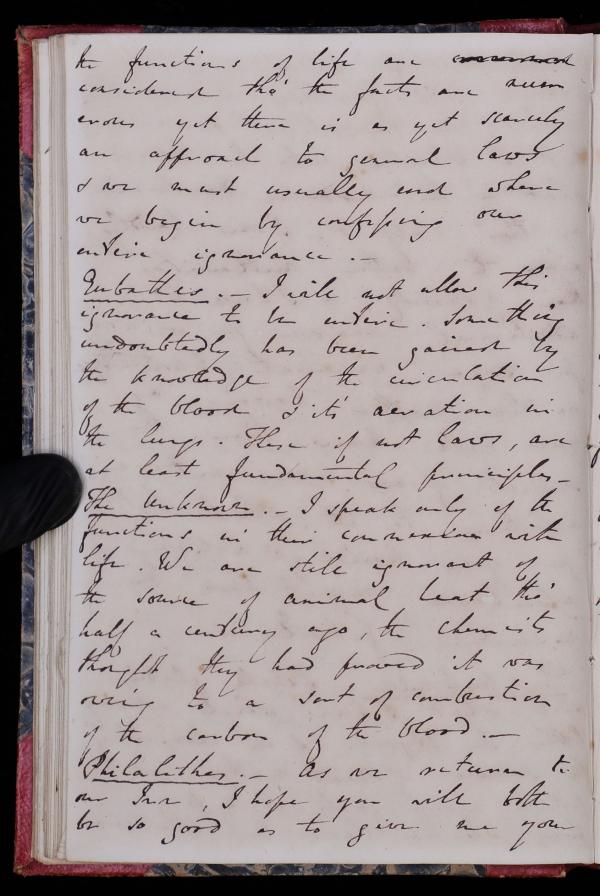 the functions of life are
considered tho' the facts are num
erous yet there is as yet scarcely
an approach to general laws
& we must usually end where
we begin by confessing our
entire ignorance. –
Eubathes. – I will not allow this
ignorance to be entire. Something
undoubtedly has been gained by
the knowledge of the circulation
of the blood & it's aeration in
the lungs. These if not laws, are
at least fundamental principles –
The Unknown. – I speak only of the
functions in their connexion with
life. We are still ignorant of
the source of animal heat tho'
half a century ago, the chemists
thought they had proved it was
owing to a sort of combustion
of the carbon of the blood. –
Philalethes. – As we return to
our Inn, I hope you will both
be so good as to give me your